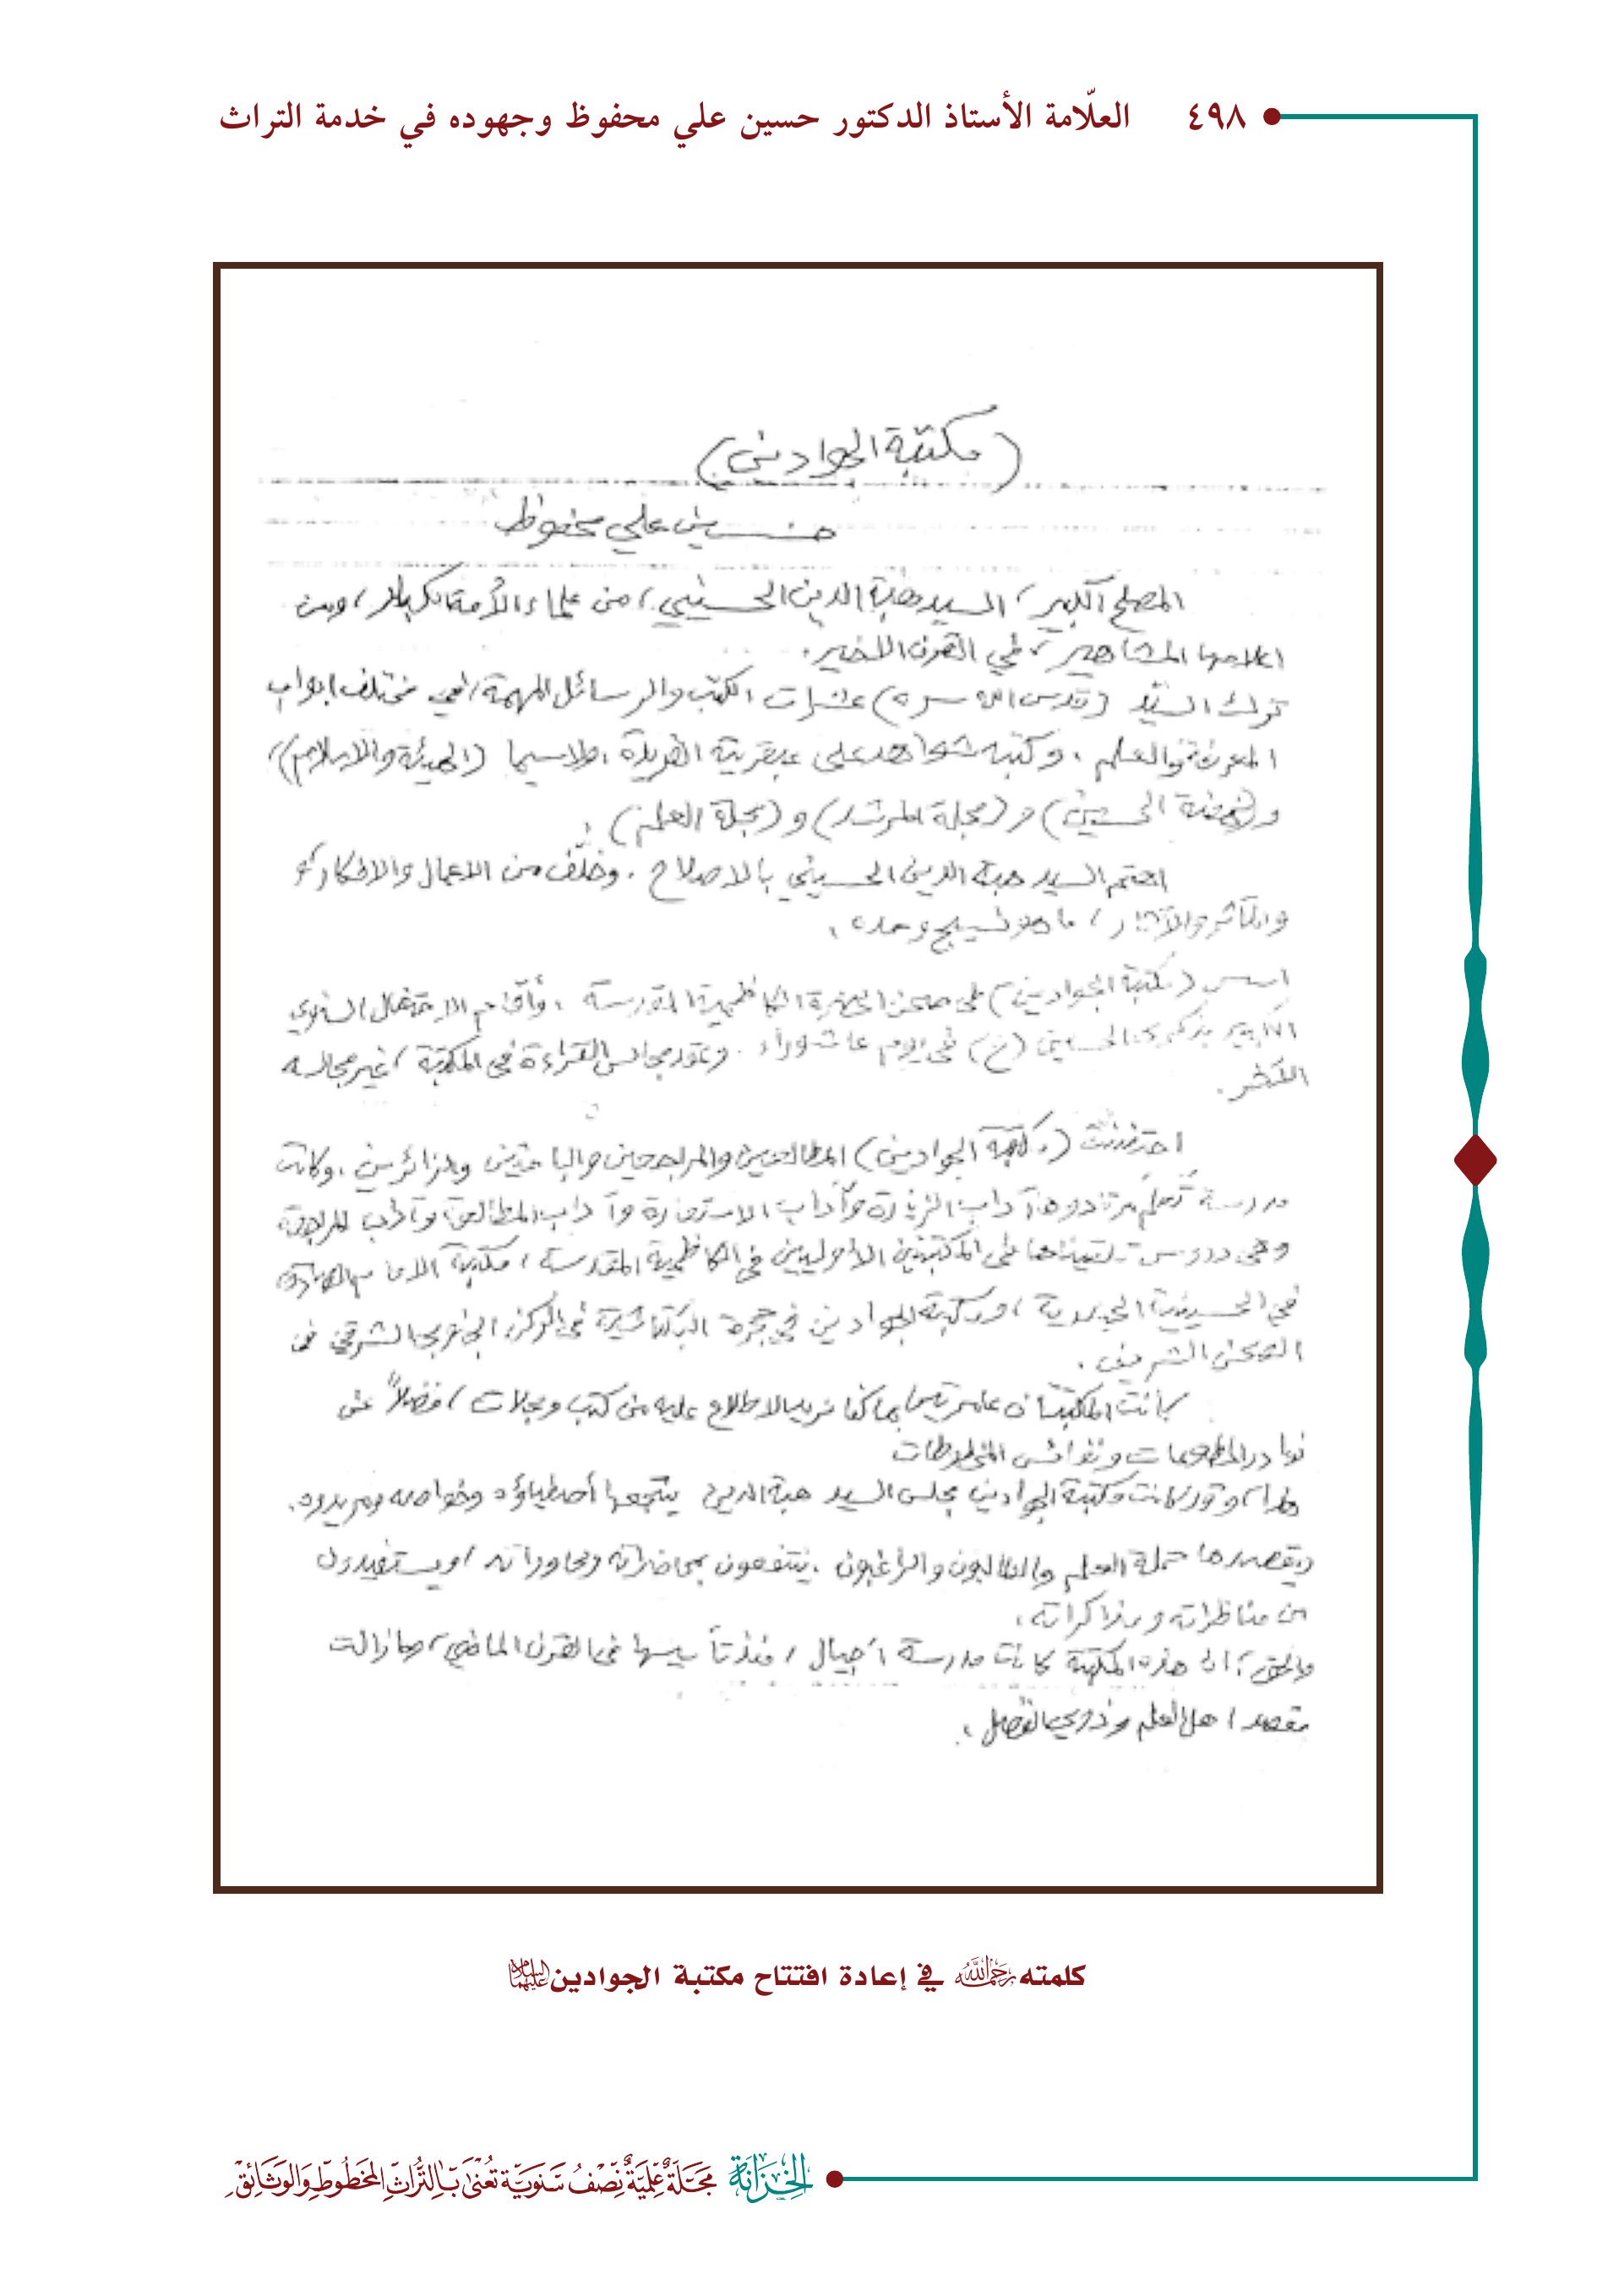 ٤٩٨ العلّامة الأستاذ الدكتور حسين علي محفوظ وجهوده في خدمة التراث
(مكتبة الجوادين)
حسين علي محفوظ
المصلح الكبير، السيد هبة الدين الحسيني، من علماء الأمة الكبار، ومن
اعلامها المشاهير، في القرن الاخير.
ترك السيّد (قدس الله سره) عشرات الكتب والرسائل المهمة، في مختلف ابواب
المعرفة والعلم، وكتبه شواهد على عبقريته الفريدة، ولاسيما (الهيئة والاسلام)،
و(نهضة الحسين) و(مجلة المرشد) و(مجلة العلم).
اهتم السيد هبة الدين الحسيني بالاصلاح. وخلّف من الاعمال والافكار
والمآثر والآثار، ما هو نسيج وحده.
اسس (مكتبة الجوادين) في صحن الحضرة الكاظمية المقدسة، وأقام الاحتفال السنوي
الكبير بذكرى الحسين (ع) في يوم عاشوراء. وعقد مجالس القراءة في المكتبة، غير مجالسه
الأخر.
احتضنت (مكتبة الجوادين) المطالعين والمراجعين والباحثين والزائرين، وكانت
مدرسة تُعلّم مرتادوها آداب الزيارة وآداب الاستعارة وآداب المطالعة وآداب المراجعة
وهي دروس تلقيناها في المكتبتين الأوليين في الكاظمية المقدسة، مكتبة الامام الصادق
في الحسينية الحيدرية، ومكتبة الجوادين في حجرة البكتاشية في الركن الجنوبي الشرقي من
الصحن الشريف.
كانت المكتبتان عامرتين بما كنا نريد الاطلاع عليه من كتب ومجلات، فضلاً عن
نوادر المطبوعات ونفائس المخطوطات
هذا، وقد كانت مكتبة الجوادين مجلس السيد هبة الدين ينتجعها أصفياؤه وخواصه ومريدوه.
ويقصدها حملة العلم والطالبون والراغبون، ينتفعون بمحاضراته ومحاوراته، ويستفيدون
من مناظراته ومذاكراته.
والحق؛ ان هذه المكتبة كانت مدرسة أجيال، منذ تأسيسها في القرن الماضي، وما زالت
مقصد اهل العلم وذوي الفضل.
كلمته رحمه الله في إعادة افتتاح مكتبة الجوادين عليهما السلام
الخِزانة مَجَلَّةٌ عِلْمِيَّةٌ نِصْفُ سَنَوِيَّة تُعْنَى بِالتُّرَاثِ المَخْطُوطِ وَالوَثَائِق